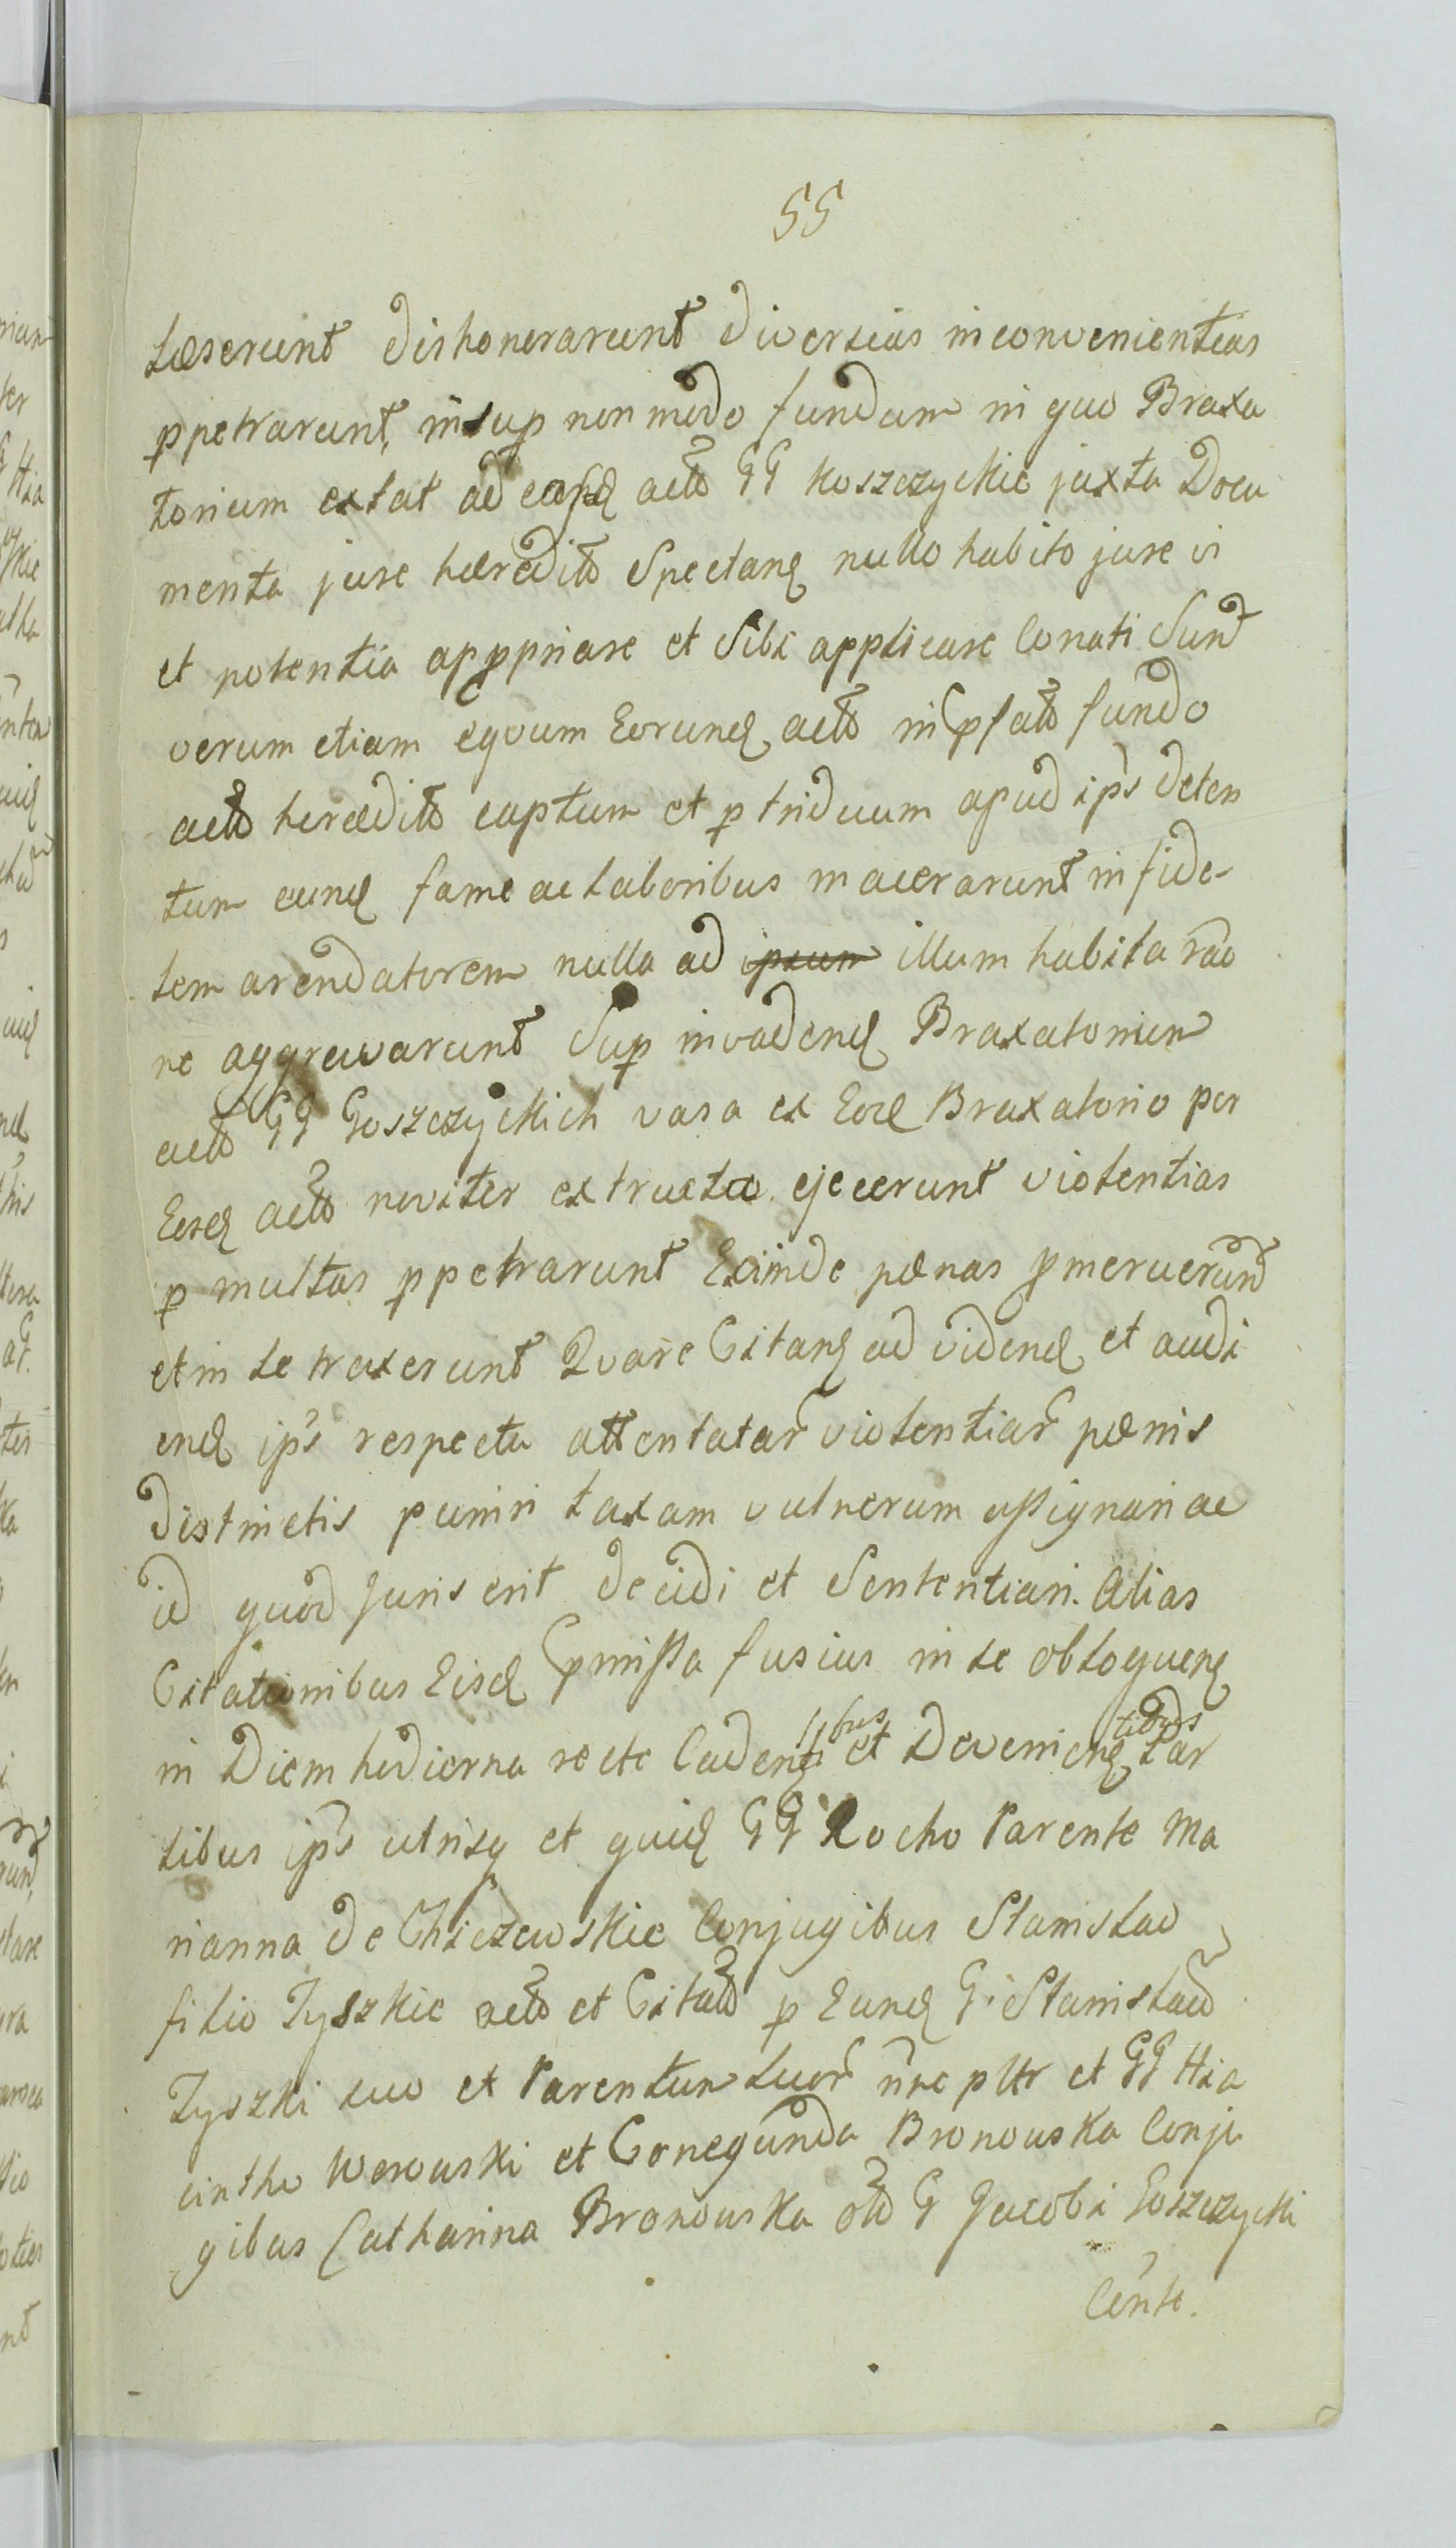 55
Læserunt dishonorarunt diversias inconvenientias
ppetrarunt, insup non modo fundum in quo Braxa
torium extat ad eosd acto GG Koszczyckie juxta Docu
menta jure hæredito Spectang nullo habito jure vi
et potentia apppriare et Sibi applicare Conati Sunt
verum etiam eqvum Eorund acto in pfato fundo
acto heredito captum et p triduum apud ips deten
tum eund fame ac laboribus macerarunt infide-
lem arendatorem nulla ad illum habita rao
ne aggrawarunt Sup invadend Braxatorium
acto GG Goszczyckich vasa ex Eod Braxatorio per
Eosd acto noviter extructo ejecerunt violentias
p multas ppetrarunt Exinde pænas pmeruerunt
et in se traxerunt Qvare Citang ad vidend et audi
end ips respectu attentatar violentiar pænis
Distinctis puniri taxam vulnerum assignari ac
id quod Juris erit decidi et Sententiari. Alias
Citationibus Eisd pmissa fusius in se obloqueng
in Diem hodierna recte Cadentibus et Devenieng tibus Par
tibus ips utrisq et quid GG Rocho Parente Ma
rianna de Chliczewskie Conjugibus Stanislao
filio Tyszkie acto et Citato p Eund G. Stanislau
Tyszki suo et Parentum suor nne pltr et GG Hia
cintho Werowski et Conegunda Bronowska Conju
gibus Catharina Bronowska olo G Jacobi Goszczycki
Conte.